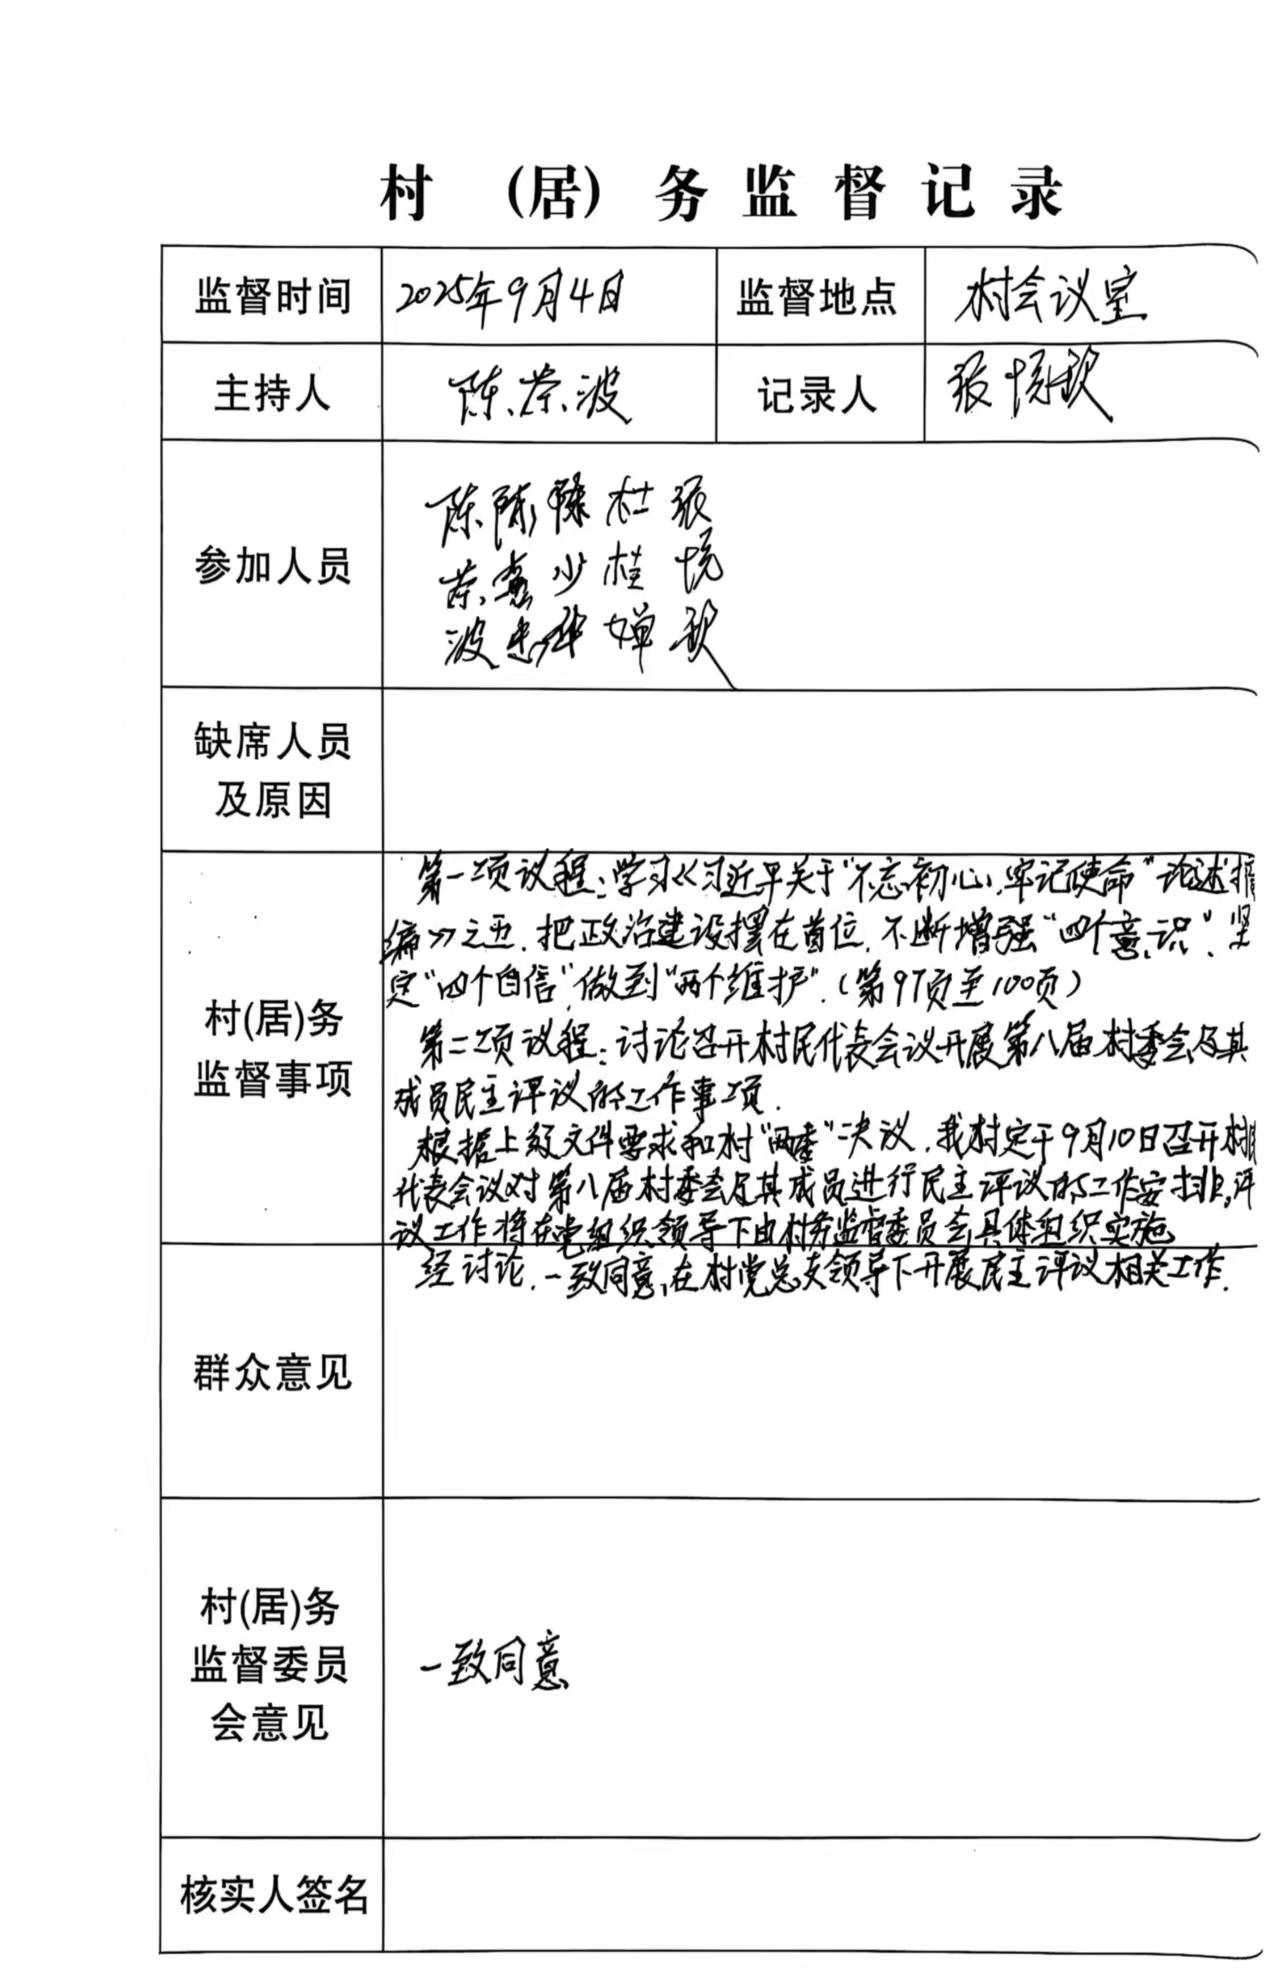 村 (居) 务 监 督 记 录
监督时间 2025年9月4日 监督地点 村会议室
主持人 陈荣波 记录人 张悦欧
参加人员
陈荣波 陈惠忠 陈少华 杜桂婵 张悦欧
缺席人员
及原因
村(居)务
监督事项
第一项议程:学习《习近平关于"不忘初心、牢记使命"论述摘
编》之五.把政治建设摆在首位,不断增强"四个意识"、坚
定"四个自信",做到"两个维护".(第97页至100页)
第二项议程:讨论召开村民代表会议开展第八届村委会及其
成员民主评议的工作事项.
根据上级文件要求和村"两委"决议,我村定于9月10日召开村民
代表会议对第八届村委会及其成员进行民主评议的工作安排,评
议工作将在党组织领导下由村务监督委员会具体组织实施
经讨论,一致同意,在村党总支领导下开展民主评议相关工作.
群众意见
村(居)务
监督委员
会意见
一致同意
核实人签名